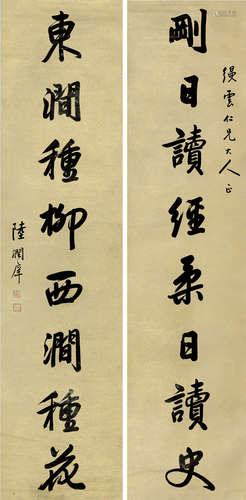 剛日讀經柔日讀史
縵雲仁兄大人正
東澗種柳西澗種花
陸潤庠